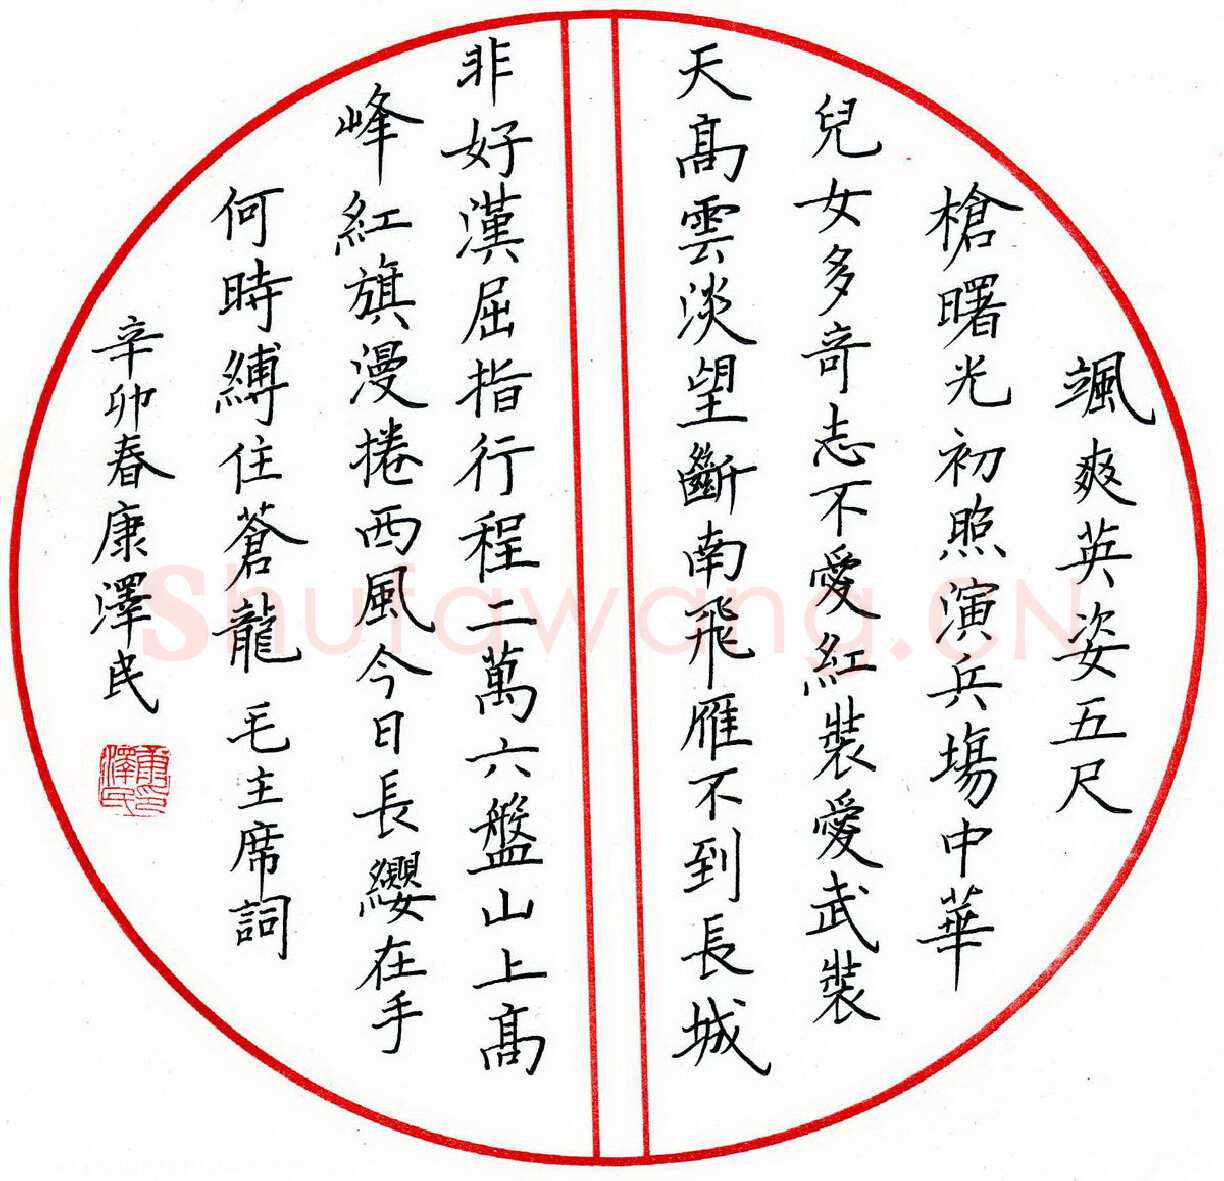 颯爽英姿五尺
槍曙光初照演兵場中華
兒女多奇志不愛紅裝愛武裝
天髙雲淡望斷南飛雁不到長城
非好漢屈指行程二萬六盤山上髙
峰紅旗漫捲西風今日長纓在手
何時縛住蒼龍毛主席詞
辛卯春康澤民
康印澤民
Shufawang.CN